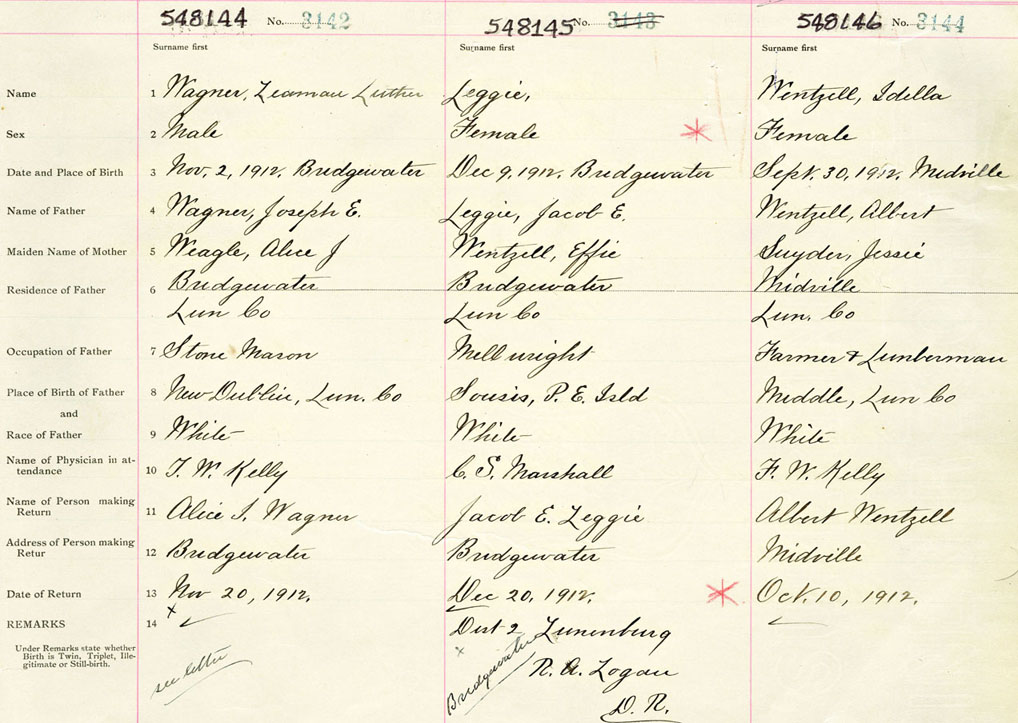 548144 No. 3142 548145 No. 3143 548146 No. 3144
Surname first Surname first Surname first
Name 1 Wagner, Zeaman Luther Leggie, Wentzell, Idella
Sex 2 Male Female Female
Date and Place of Birth 3 Nov. 2, 1912. Bridgewater Dec 9, 1912. Bridgewater Sept. 30, 1912. Midville
Name of Father 4 Wagner, Joseph E. Leggie, Jacob E. Wentzell, Albert
Maiden Name of Mother 5 Weagle, Alice J Wentzell, Effie Snyder, Jessie
Residence of Father 6 Bridgewater Bridgewater Midville
Lun Co Lun Co Lun. Co
Occupation of Father 7 Stone Mason Millwright Farmer & Lunberman
Place of Birth of Father 8 New Dublin, Lun. Co Sousis, P. E. Isld Middle, Lun Co
and
Race of Father 9 White White White
Name of Physician in at-
tendance 10 F. W. Kelly C. S. Marshall F. W. Kelly
Name of Person making
Return 11 Alice J. Wagner Jacob E. Leggie Albert Wentzell
Address of Person making
Retur 12 Bridgewater Bridgewater Midville
Date of Return 13 Nov 20, 1912. Dec 20, 1912. Oct. 10, 1912.
REMARKS 14 Dist 2 Lunenburg
Under Remarks state whether
Birth is Twin, Triplet, Ille-
gitimate or Still-birth.
see letter Bridgewater R. A. Logan
D. R.